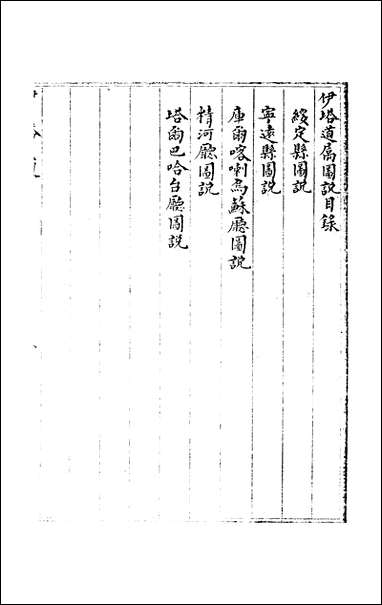 伊塔道屬圖說目錄
綏定縣圖說
寧遠縣圖說
庫爾喀喇烏蘇廳圖說
精河廳圖說
塔爾巴哈台廳圖說